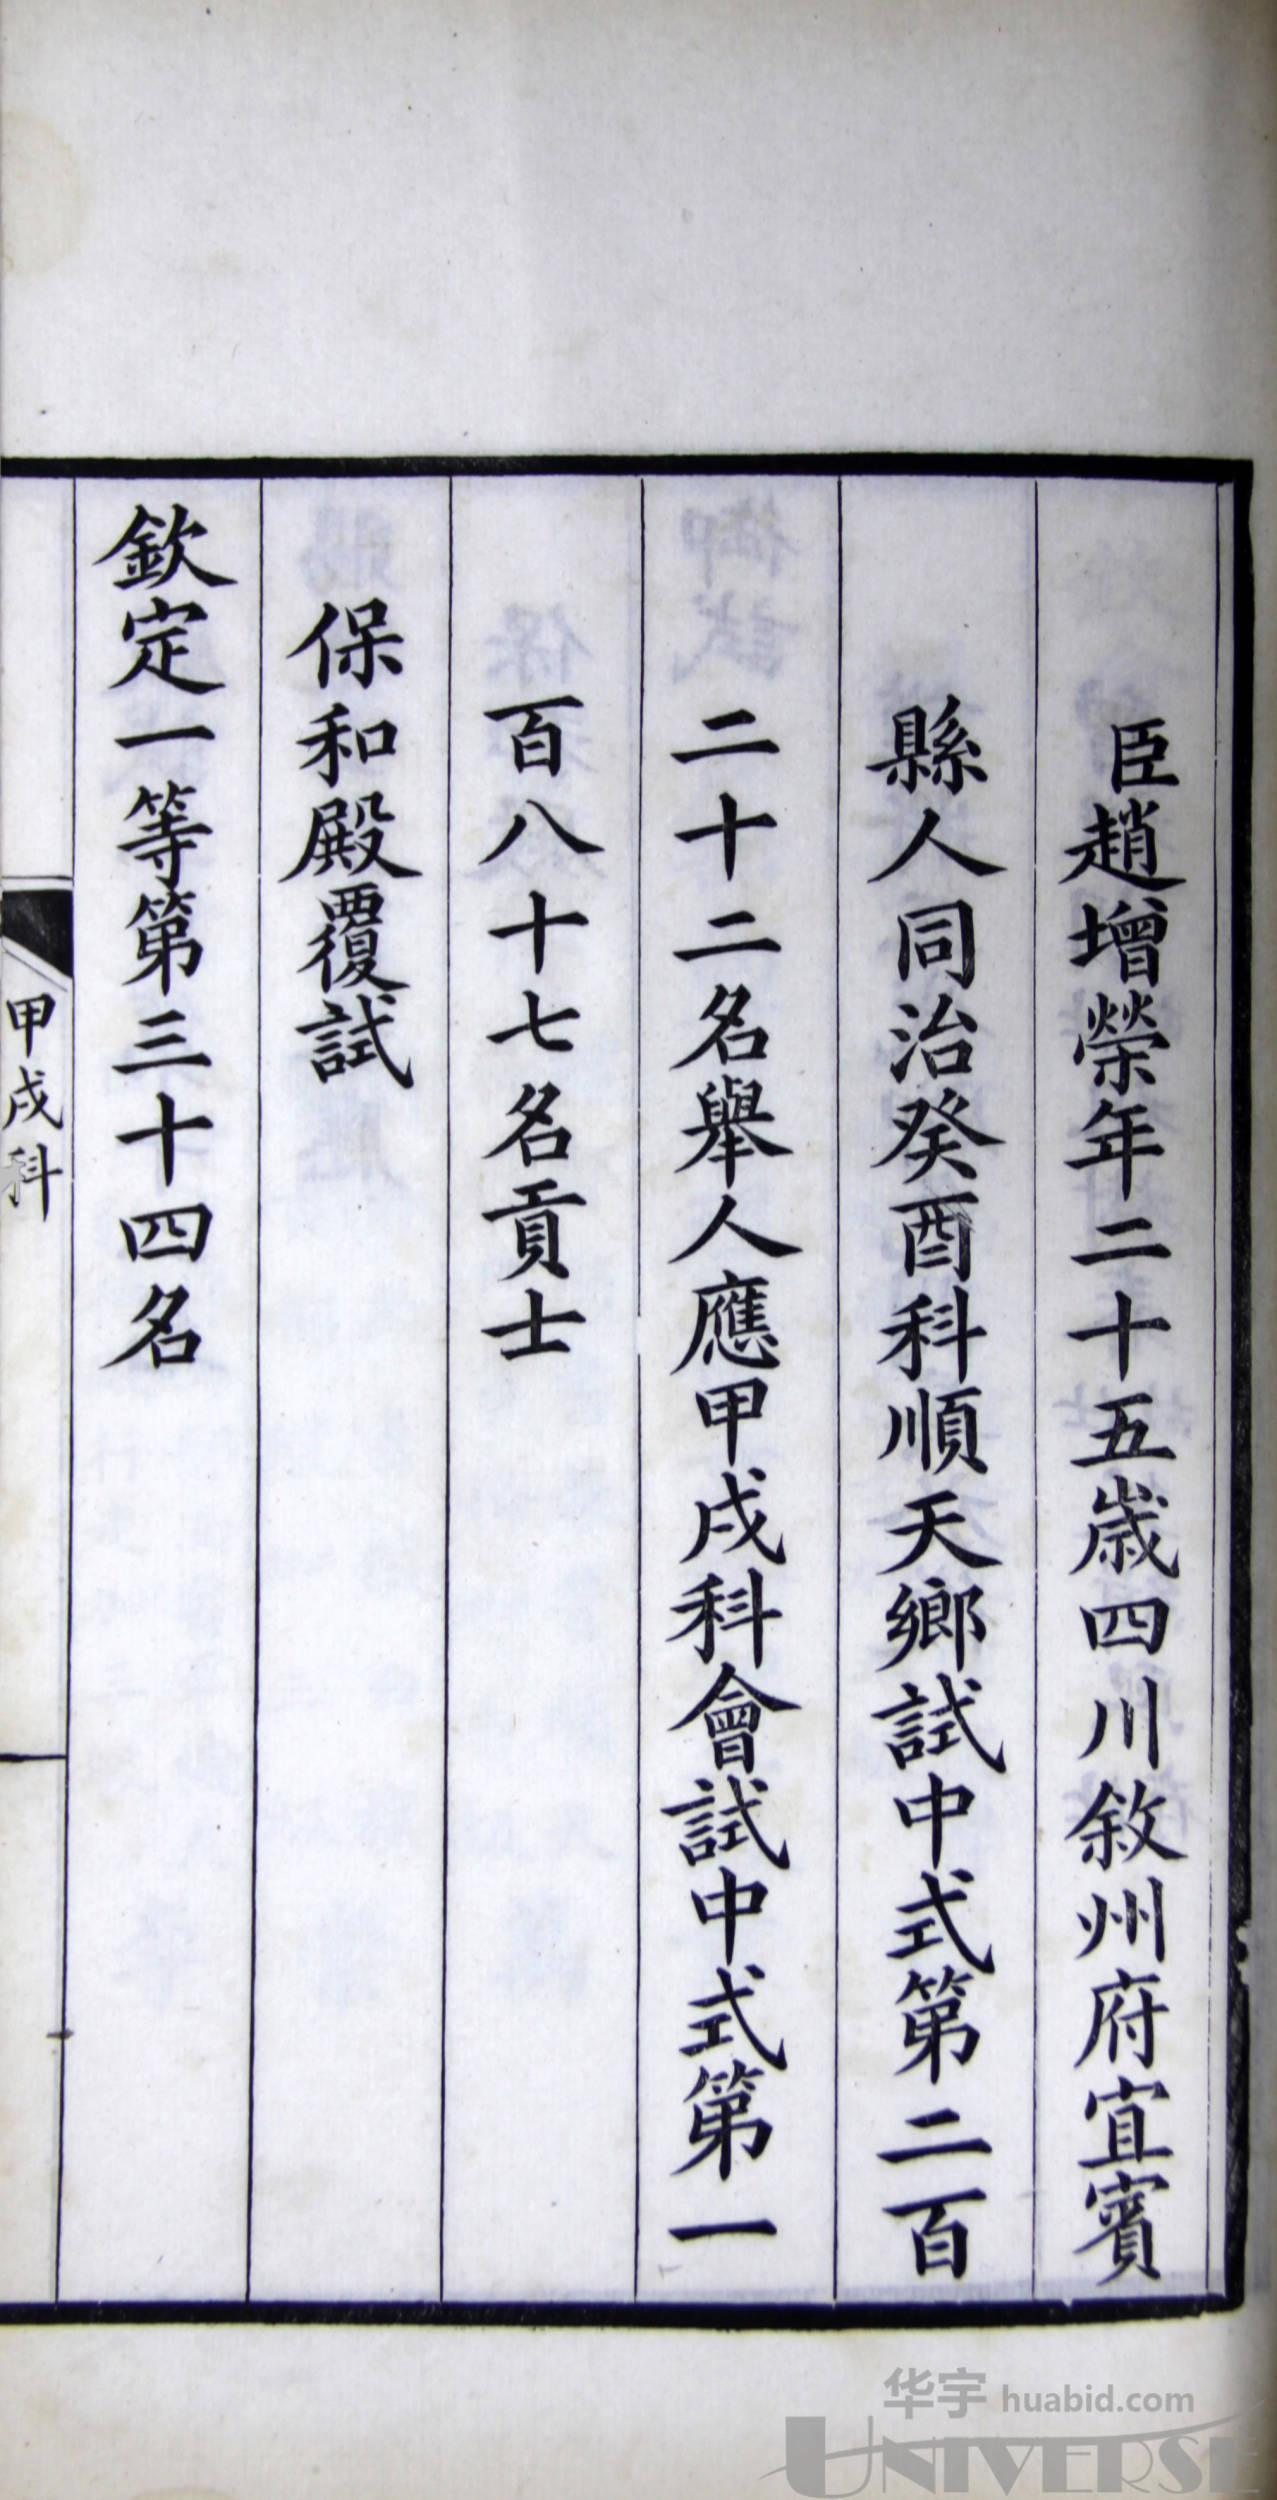 臣趙增榮年二十五歲四川敘州府宜賓
縣人同治癸酉科順天鄉試中式第二百
二十二名舉人應甲戌科會試中式第一
百八十七名貢士
保和殿覆試
欽定一等第三十四名
甲戌科
华宇 huabid.com
UNIVERSE